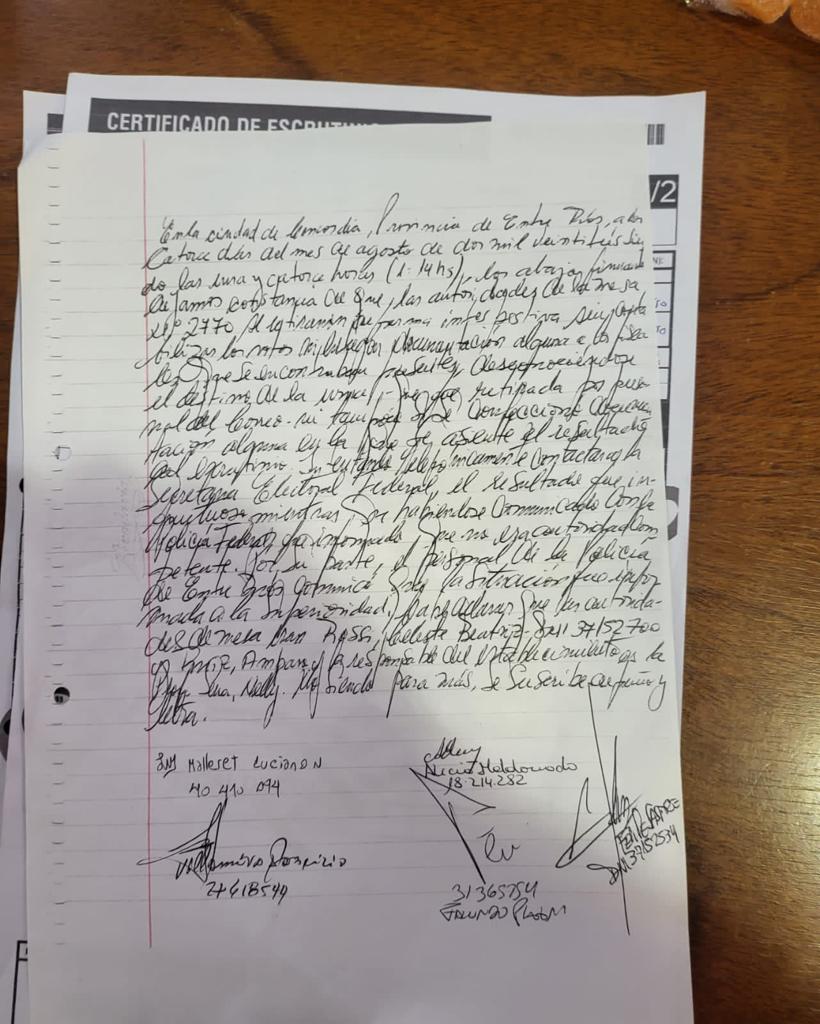 CERTIFICADO DE ESCRUTINIO
/2
En la ciudad de Concordia, Provincia de Entre Ríos, a los
catorce días del mes de agosto de dos mil veintitrés sien
do las una y catorce horas (1:14 hs), los abajo firmante
dejamos constancia de que, las autoridades de la mesa
Nº 2770 se retiraron de forma intespestiva sin conta
bilizar los votos ni entregar documentación alguna a los fisca
les que se encontraban presentes, desconociéndose
el destino de la urna, que fue retirada por perso
nal del Correo. ni tampoco se confeccionó documen
tación alguna en la que se asiente el resultado
del escrutinio. telefónicamente contactar a la
Secretaría Electoral Federal, el resultado fue in-
fructuoso mientras que habiéndose comunicado con la
Policía Federal, ha informado que no es autoridad com
petente. Por su parte, el personal de la Policía
de Entre Ríos comunicó que la situación fue infor
mada a la superioridad. aclarar que las autorida-
des de mesa son Rossi, Celeste Beatriz DNI 37152700
y Amparo y la responsable del establecimiento es la
Nelly. No siendo para más, se suscribe de puño y
letra.
Malleret Luciano N
40 410 094
Alicia Maldonado
18.214.282
27618549
31365754
DNI 37152534